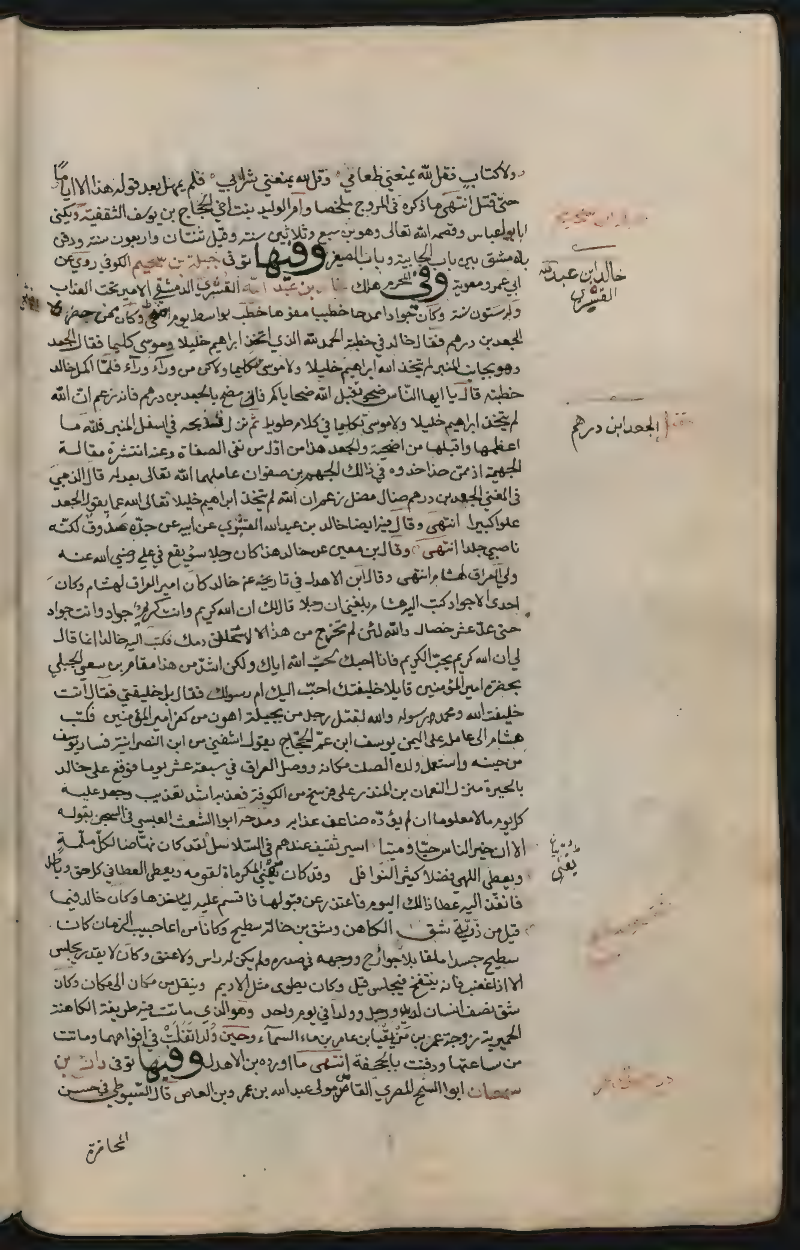 ولا كتاب فقل لله يمنعني طعامي وقل لله يمنعني شرابي فلم يمهل بعد قوله هذا الا اياما
حتى قتل انتهى ما ذكره في المروج ملخصا وام الوليد بنت اخي الحجاج بن يوسف الثقفية ويكنى
ابا العباس وقصمه الله تعالى وهو بن سبع وثلاثين سنة وقيل ثنتان واربعون سنة ودفن
بدمشق بين باب الجابية وباب الصغير وفيها توفى جبلة بن سحيم الكوفي روي عن
ابي عمر ومعوية وفي المحرم هلك خالد بن عبد الله القسري الدمشقي الامير تحت العذاب
وله ستون سنة وكان جوادا ممدحا خطيبا مفوها خطب بواسط يوم اضحى وكان ممن حضره
الجعد بن درهم فقال خالد في خطبته الحمد لله الذي اتخذ ابراهيم خليلا وموسى كليما فقال الجعد
وهو بجانب المنبر لم يتخذ الله ابراهيم خليلا ولا موسى كليما ولاكن من وراء وراء فلما اكمل خالد
خطبته قال يا ايها الناس ضحوا تقبل الله ضحاياكم فاني مضح بالجعد بن درهم فانه زعم ان الله
لم يتخذ ابراهيم خليلا ولا موسى كليما في كلام طويل ثم نزل فذبحه في اسفل المنبر فلله ما
اعظمها واقبلها من اضحية والجعد هذا من اول من نفى الصفات وعنه انتشرت مقالة
الجهمية اذ ممن حذا حذوه في ذالك الجهم بن صفوان عاملهما الله تعالى بعدله قال الذهبي
في المغني الجعد بن درهم ضال مضل زعم ان الله لم يتخذ ابراهيم خليلا تعالى الله عما يقول الجعد
علوا كبيرا انتهى وقال فيه ايضا خالد بن عبد الله القسري عن ابيه عن جده صدوق لكنه
ناصبي جلد انتهى وقال بن معين عن خالد هذا كان رجلا سوء يقع في علي رضي الله عنه
ولي العراق لهشام انتهى وقال ابن الاهدل في تاريخه عن خالد كان امير العراق لهشام وكان
احدى الاجواد كتب اليه هشام بلغني ان رجلا قال لك ان الله كريم وانت كريم جواد وانت جواد
حتى عد عشر خصال والله لئن لم تخرج من هذا الاستحلن دمك فكتب اليه خالد انما قال
لي ان الله كريم يحب الكريم فانا احبك لحب الله اياك ولكن اشد من هذا مقام بن سعي الجبلي
بحضرة امير المؤمنين قايلا خليفتك احب اليك ام رسولك فقال بل خليفتي فقال انت
خليفة الله ومحمد رسوله والله لقتل رجل من بجيلة اهون من كفر امير المؤمنين فكتب
هشام الى عامله على اليمن يوسف ابن عم الحجاج يقول اشفني من ابن النصرانية فسار يوسف
من حينه واستعمل ولده الصلت مكانه ووصل العراق في سبعة عشر يوما فوقع على خالد
بالحيرة منزل النعمان بن المنذر على فرسخ من الكوفة فعذبه اشد تعذيب وجعل عليه
كل يوم مالا معلوما ان لم يؤده ضاعف عذابه ومدحه ابوا الشعث العبسي في السجن بقوله
الا ان خير الناس حيا وميتا اسير ثقيف عندهم في السلاسل لقد كان نهاضا لكل ملمة
ويعطي اللهي فضلا كثير النوافل وقد كان يبني المكرمات لقومه ويعطي العطا في كل حق وباطل
فانفذ اليه عطا ذالك اليوم فاعتذر عن قبولها فاقسم عليه لياخذها وكان خالد فيما
قيل من ذرية شق الكاهن وشق بن خالة سطيح وكانا من اعاجيب الزمان كان
سطيح جسدا ملقا بلا جوارح ووجهه في صدره ولم يكن له راس ولا عنق وكان لا يقدر يجلس
الا اذا غضب فانه ينتفخ فيجلس قيل وكان يطوى مثل الاديم وينقل من مكان الى مكان وكان
شق نصف انسان له يد ورجل وولدا في يوم واحد وهو الذي ماتت فيه طريفة الكاهنة
الحميرية زوجة عمر بن مزيقيا بن عامر بن ماء السماء وحين ولدا تفلت في افواههما وماتت
من ساعتها ودفنت بالجحفة انتهى ما اورده بن الاهدل وفيها توفى دراج بن
سمعان ابوا السمح المصري القاص مولى عبد الله بن عمر وبن العاص قال السيوطي في حسن
المحاضرة
خالد ابن عبد الله
القسري
الجعد ابن درهم
يقنى